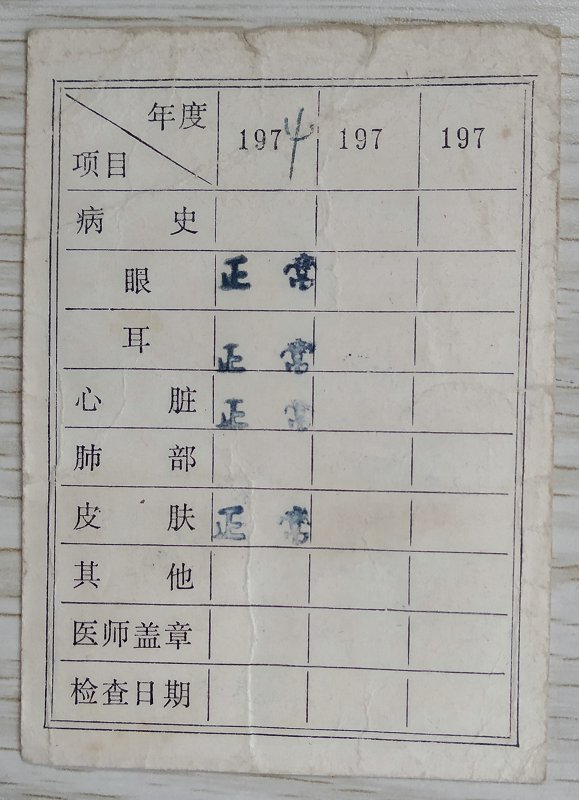 年度
项目 1974 197 197
病史
眼 正常
耳 正常
心脏 正常
肺部
皮肤 正常
其他
医师盖章
检查日期